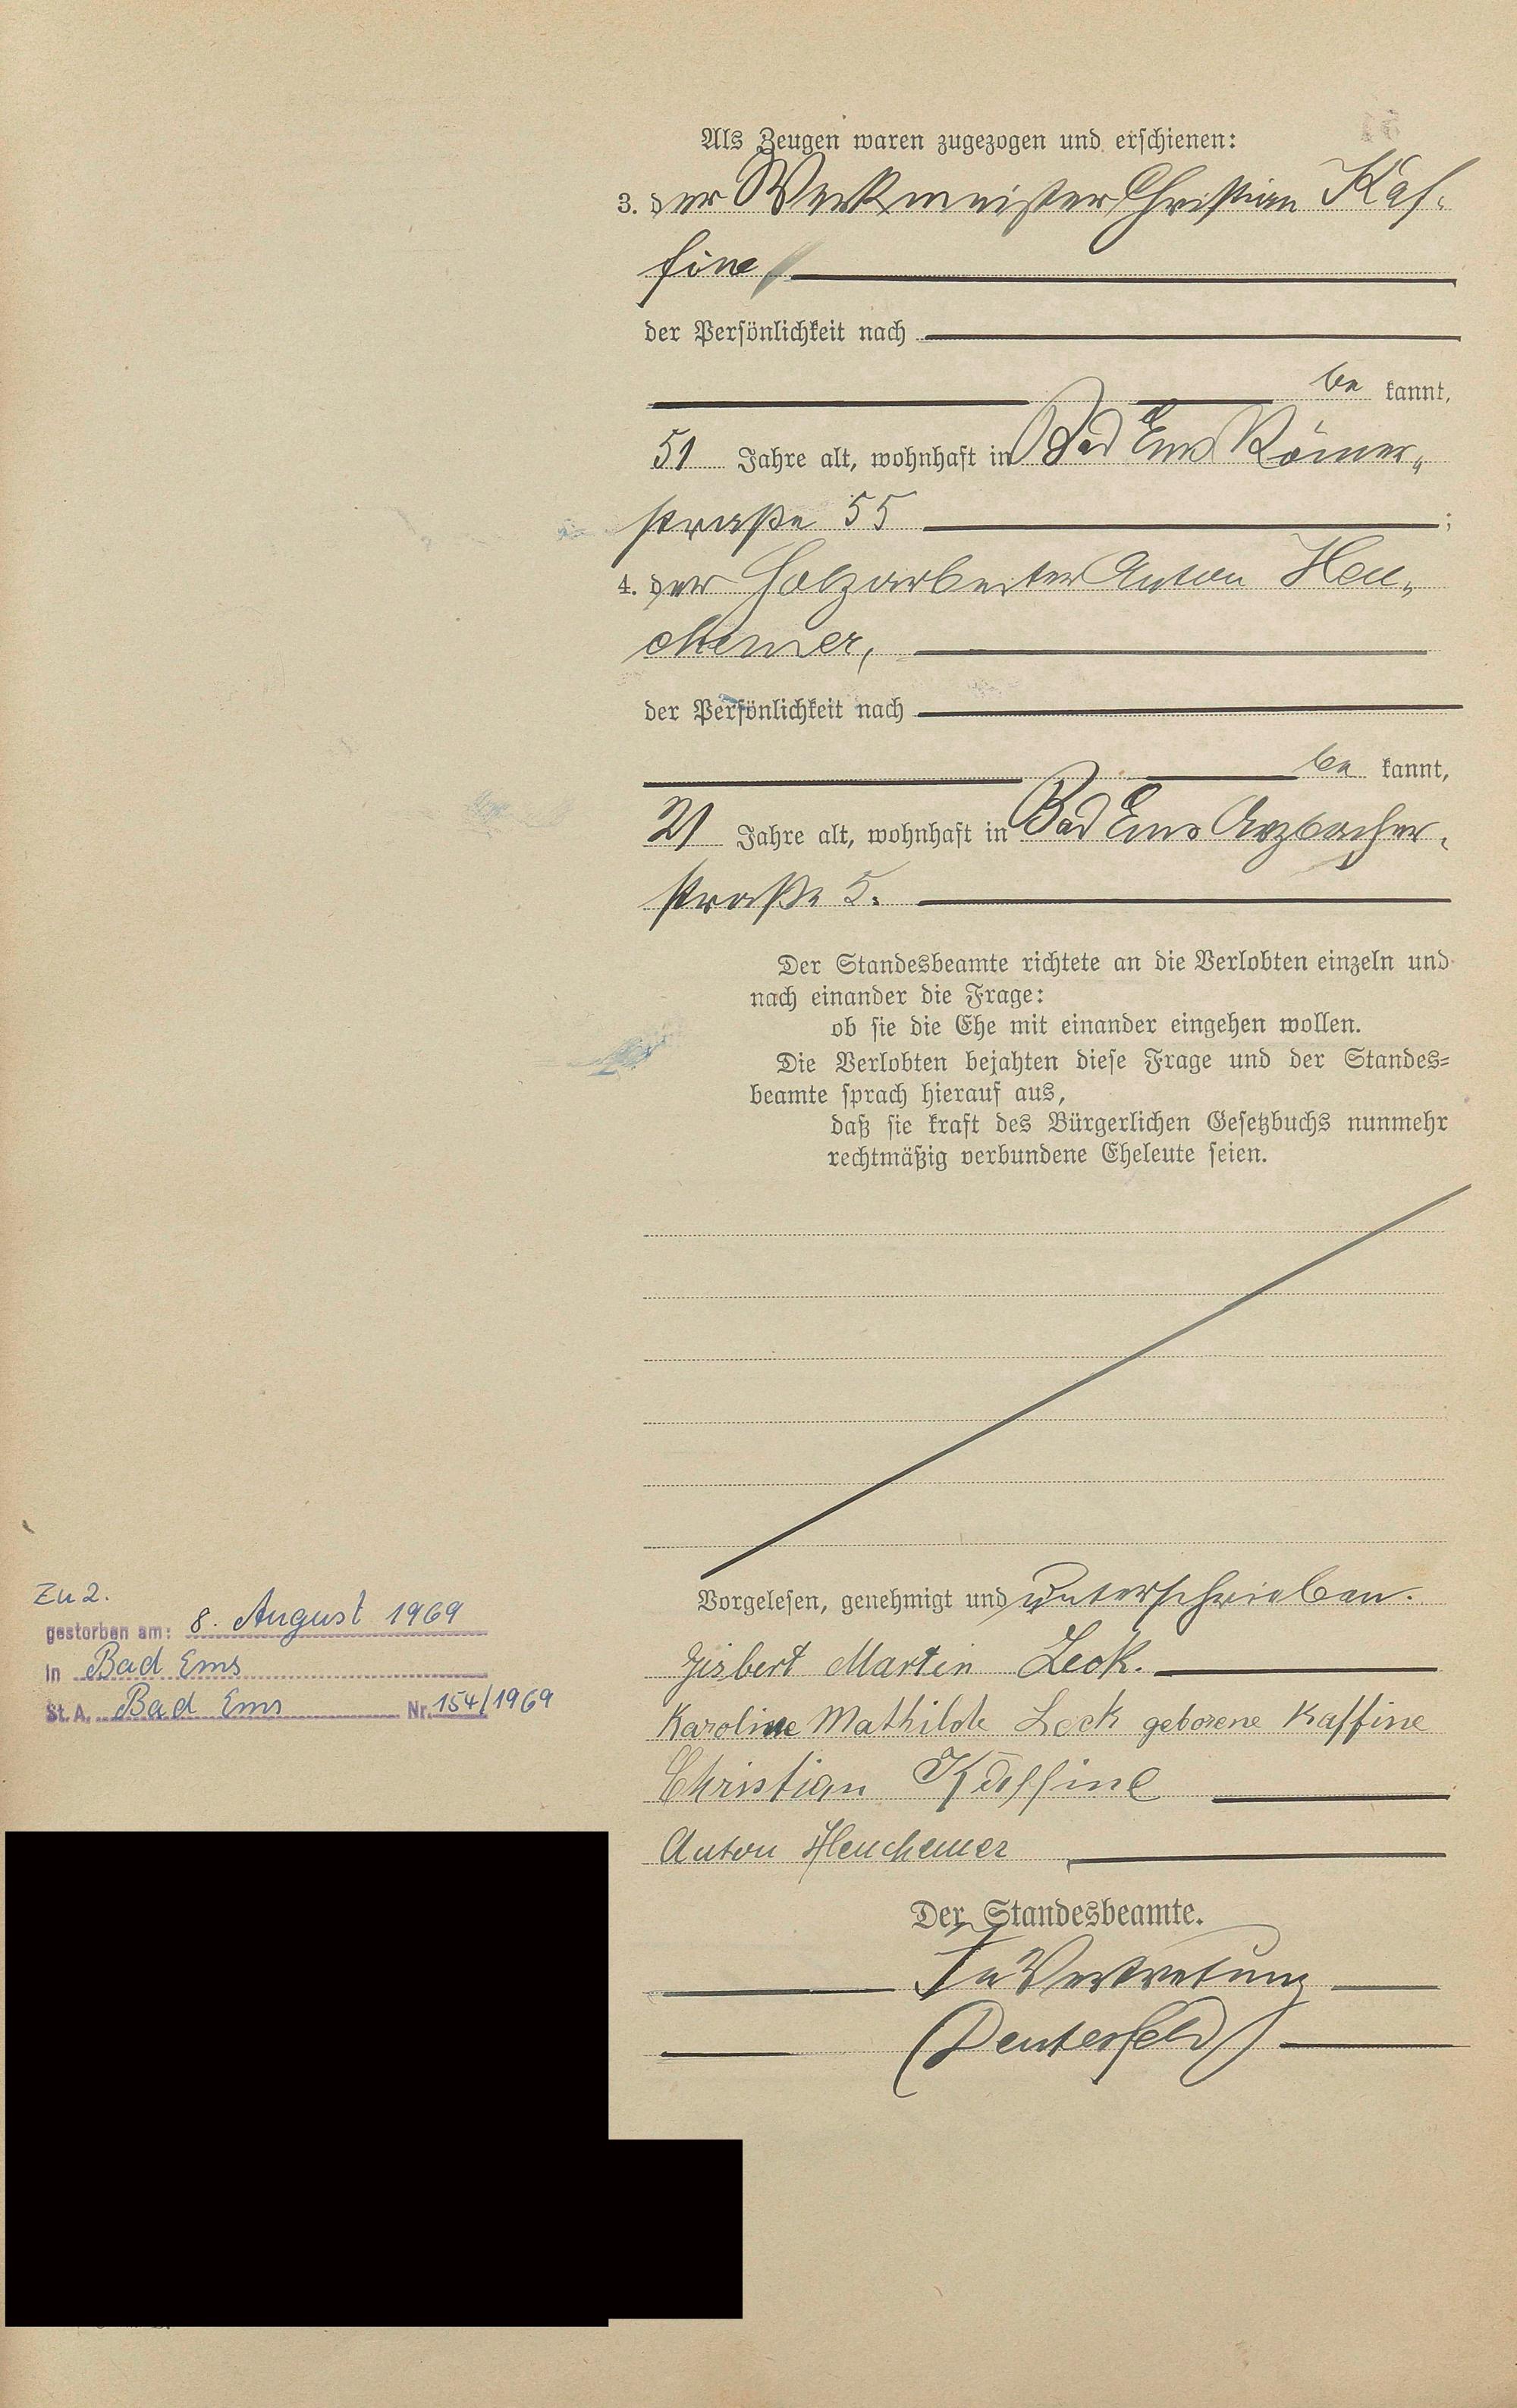 Als Zeugen waren zugezogen und erschienen:
3. der Werkmeister Christian Kaf-
fine
der Persönlichkeit nach
be kannt,
51 Jahre alt, wohnhaft in Bad Ems Römer-
straße 55 ;
4. der Holzarbeiter Anton Heu-
chemer,
der Persönlichkeit nach
be kannt,
21 Jahre alt, wohnhaft in Bad Ems Arzbacher-
straße 5.
Der Standesbeamte richtete an die Verlobten einzeln und
nach einander die Frage:
ob sie die Ehe mit einander eingehen wollen.
Die Verlobten bejahten diese Frage und der Standes-
beamte sprach hierauf aus,
daß sie kraft des Bürgerlichen Gesetzbuchs nunmehr
rechtmäßig verbundene Eheleute seien.
Vorgelesen, genehmigt und unterschrieben.
Gisbert Martin Leck.
Karoline Mathilde Leck geborene Kaffine
Christian Kaffine
Anton Heuchemer
Der Standesbeamte.
In Vertretung
Zu 2.
gestorben am: 8. August 1969
in Bad Ems
St. A. Bad Ems Nr. 154/1969